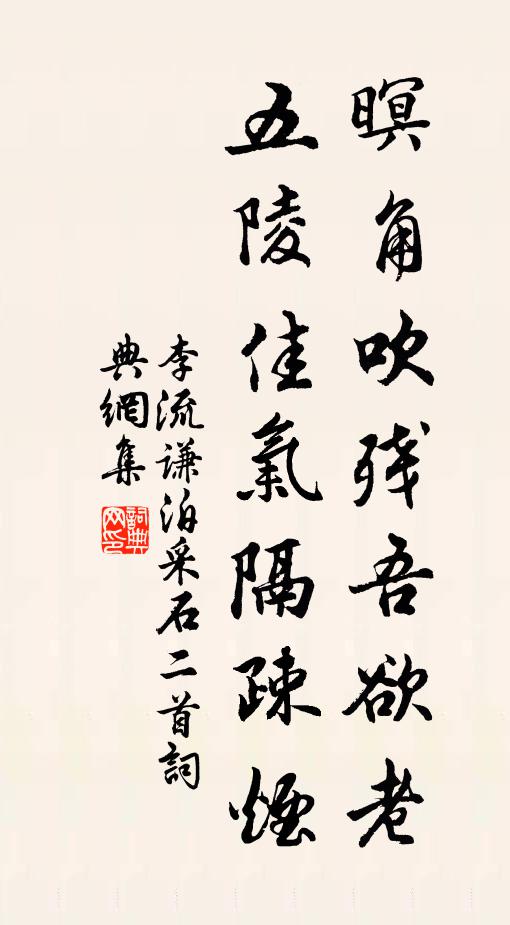 暝角吹残吾欲老
五陵佳氣隔疎煙
李流謙泊采石二首詞
典網集
詞典网印